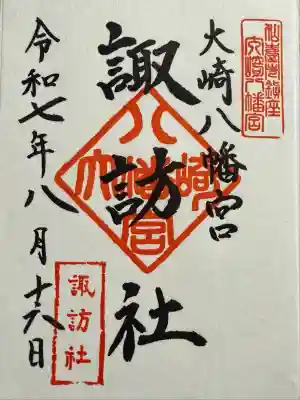 仙臺市鎮座
大崎八幡宮
大崎八幡宮
諏訪社
大崎八幡宮
令和七年八月十六日
諏訪社